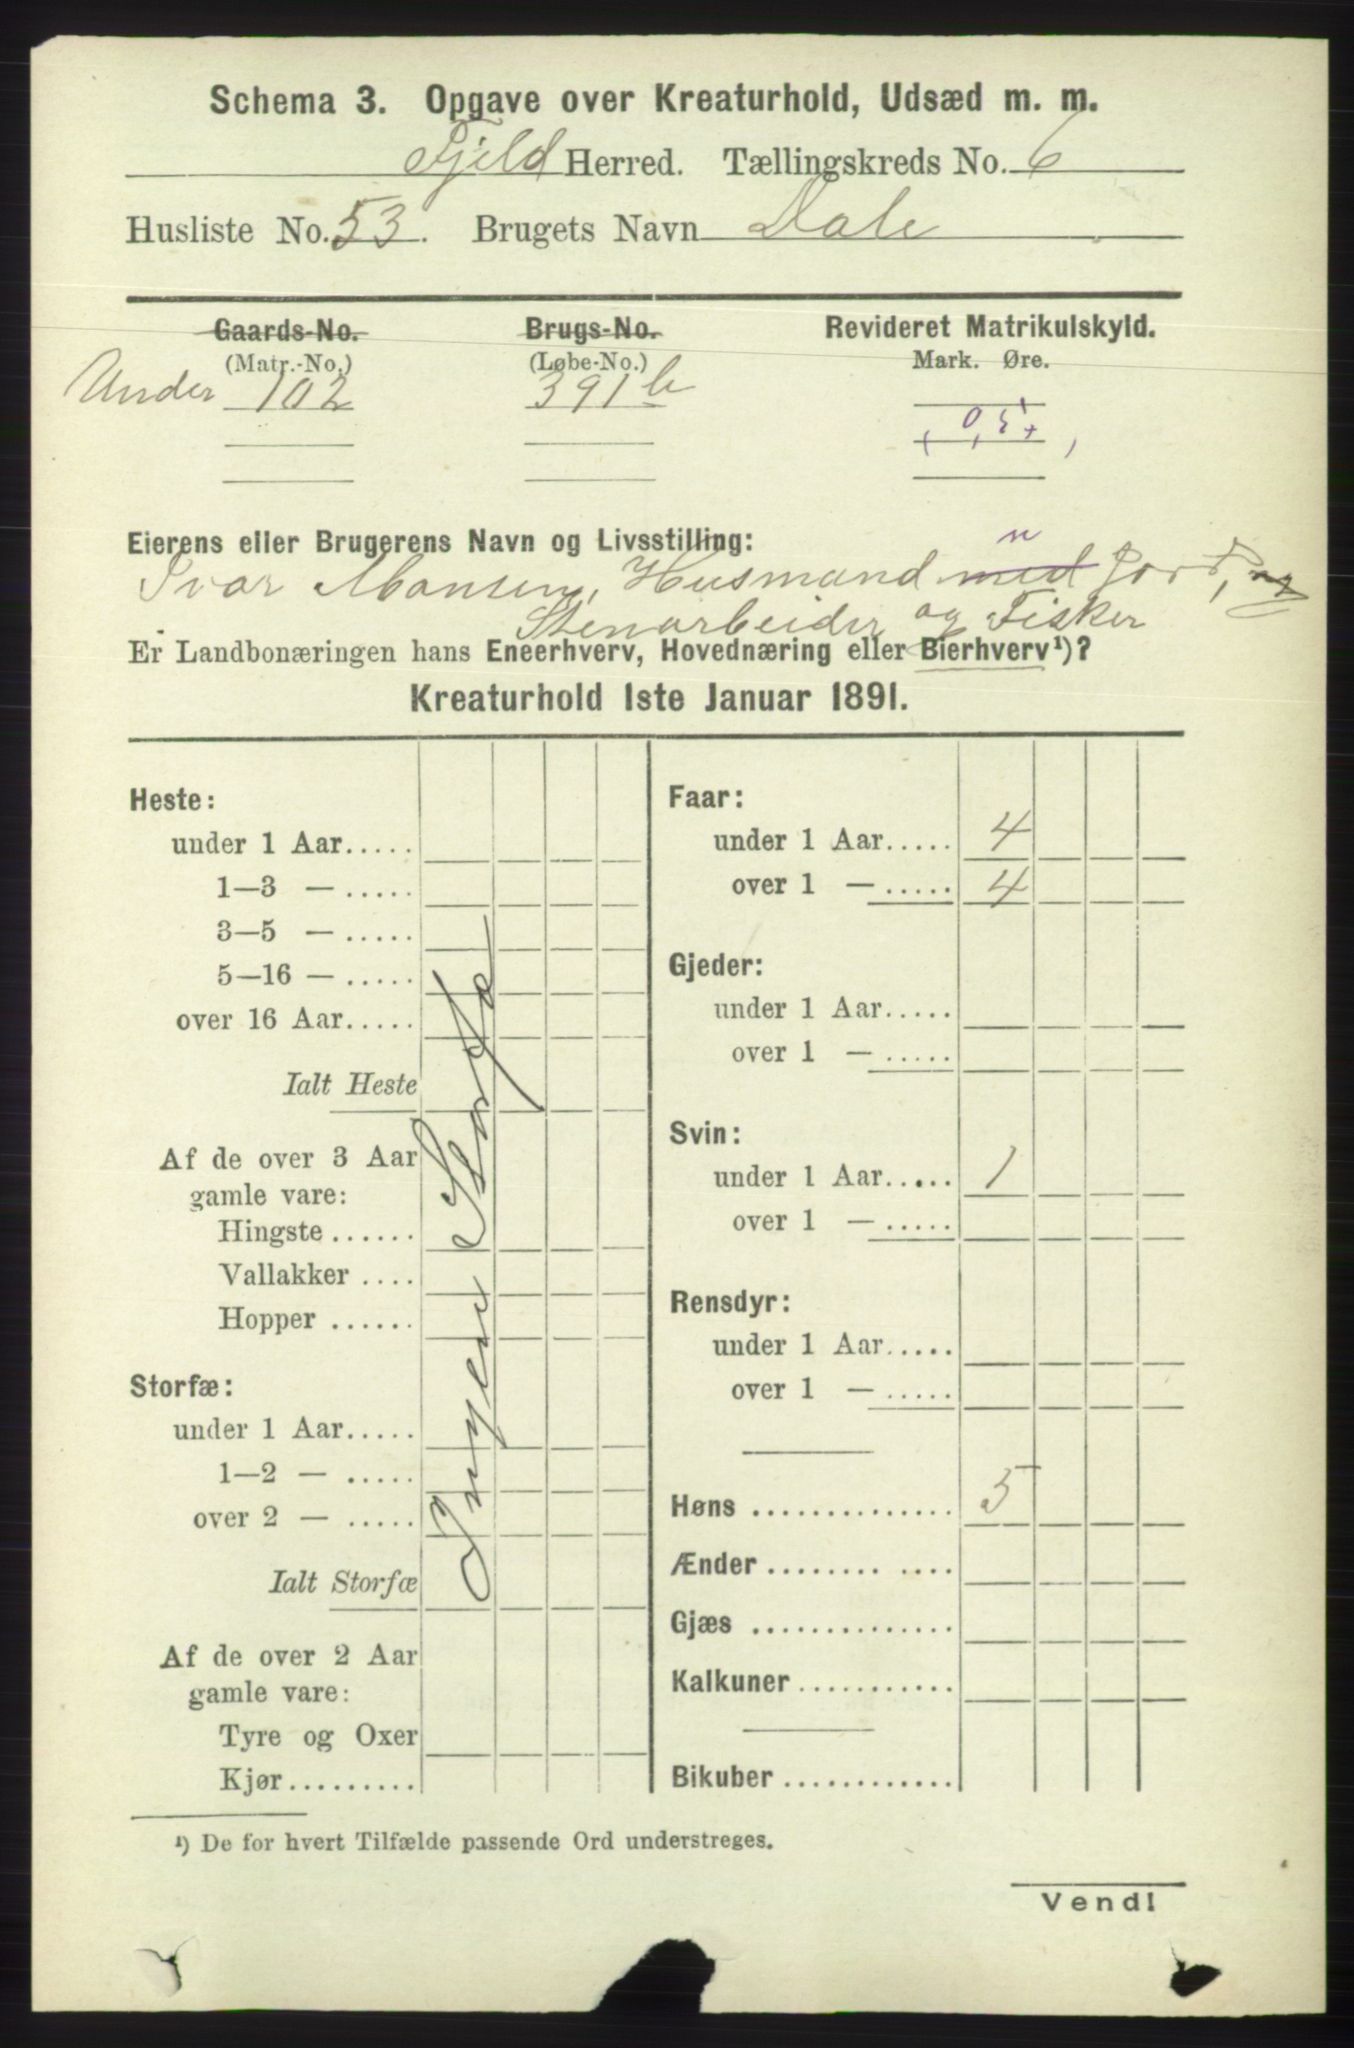 Schema 3. Opgave over Kreaturhold, Udsæd m. m.
Fjeld Herred. Tællingskreds No. 6
Husliste No. 53. Brugets Navn Dale
Gaards-No. Brugs-No. Revideret Matrikulskyld.
(Matr.-No.) (Løbe-No.) Mark. Øre.
Under 102 391 b
Eierens eller Brugerens Navn og Livsstilling:
Ivar Monsen, Husmand med Jord, og
Stenarbeider og Fisker
Er Landbonæringen hans Eneerhverv, Hovednæring eller Bierhverv¹)?
Kreaturhold 1ste Januar 1891.
Heste:
under 1 Aar.....
1—3 — .....
3—5 — .....
5—16 — .....
over 16 Aar.....
Ialt Heste
Af de over 3 Aar
gamle vare:
Hingste ......
Vallakker ....
Hopper ......
Storfæ:
under 1 Aar.....
1—2 — .....
over 2 — .....
Ialt Storfæ
Af de over 2 Aar
gamle vare:
Tyre og Oxer
Kjør.........
Ingen Storfæ
Faar:
under 1 Aar..... 4
over 1 — ..... 4
Gjeder:
under 1 Aar.....
over 1 — .....
Svin:
under 1 Aar..... 1
over 1 — .....
Rensdyr:
under 1 Aar.....
over 1 — .....
Høns .............. 5
Ænder ........ ....
Gjæs ..............
Kalkuner ...........
Bikuber ............
¹) De for hvert Tilfælde passende Ord understreges.
Vend!